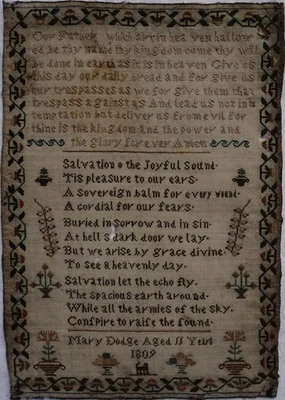 Our Father which art in hea ven hallow
ed be thy name thy kingdom come thy will
be done in earth as it is in heaven Give us
this day our daily bread and for give us
our trespasses as we for give them that
trespass against us And lead us not in
temptation but deliver us from e vil for
thine is the kingdom and the power and
the glory for ever Amen
Salvation o the Joyful Sound
Tis pleasure to our ears
A Sovereign balm for every wound
A cordial for our fears
Buried in Sorrow and in Sin
At hell s dark door we lay
But we arise by grace divine
To See a heavenly day
Salvation let the echo fly
The Spacious earth around
While all the armies of the Sky
Conspire to raise the sound
Mary Dodge Aged 11 Years
1809